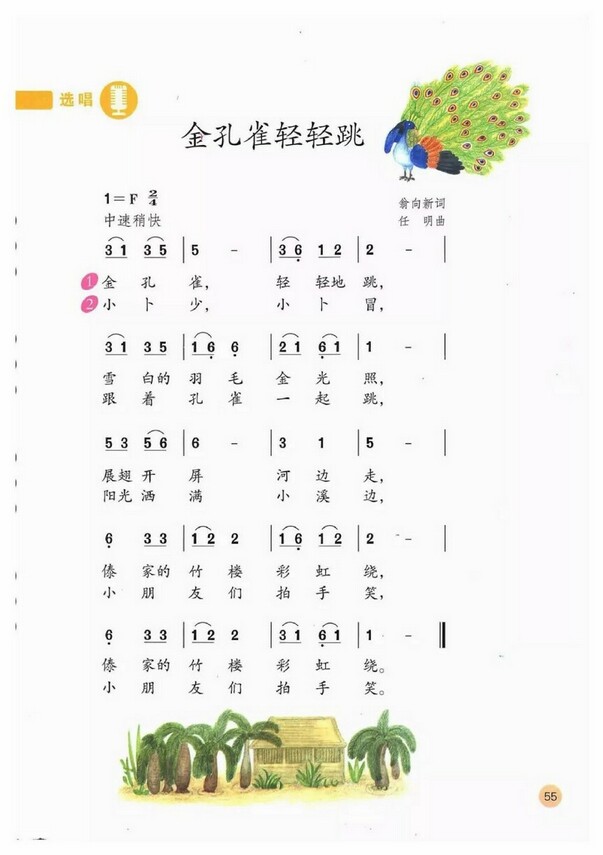 选唱
金孔雀轻轻跳
1=F 2/4
翁向新词
中速稍快
任 明曲
3 1 3 5 | 5 - | 3 6 1 2 | 2 - |
1 金 孔 雀, 轻 轻地 跳,
2 小 卜 少, 小 卜 冒,
3 1 3 5 | 1 6 6 | 2 1 6 1 | 1 - |
雪 白的 羽 毛 金 光 照,
跟 着 孔 雀 一 起 跳,
5 3 5 6 | 6 - | 3 1 | 5 - |
展翅 开 屏 河 边 走,
阳光 洒 满 小 溪 边,
6 3 3 | 1 2 2 | 1 6 1 2 | 2 - |
傣 家的 竹 楼 彩 虹 绕,
小 朋 友 们 拍 手 笑,
6 3 3 | 1 2 2 | 3 1 6 1 | 1 - ‖
傣 家的 竹 楼 彩 虹 绕。
小 朋 友 们 拍 手 笑。
55